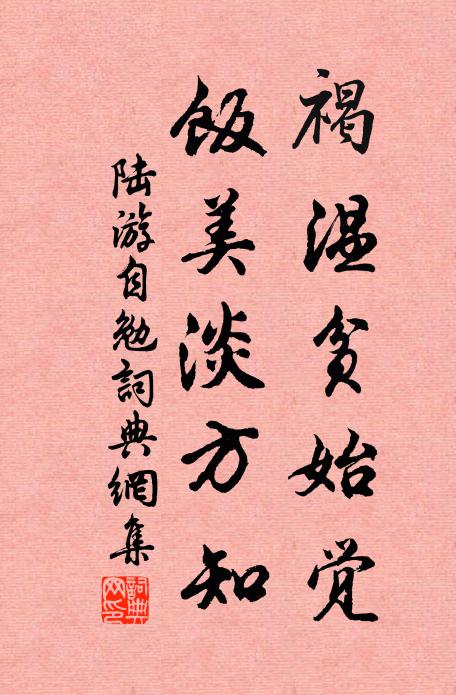 褐温贫始觉
饭美淡方知
陆游自勉詞典網集
詞典
网印